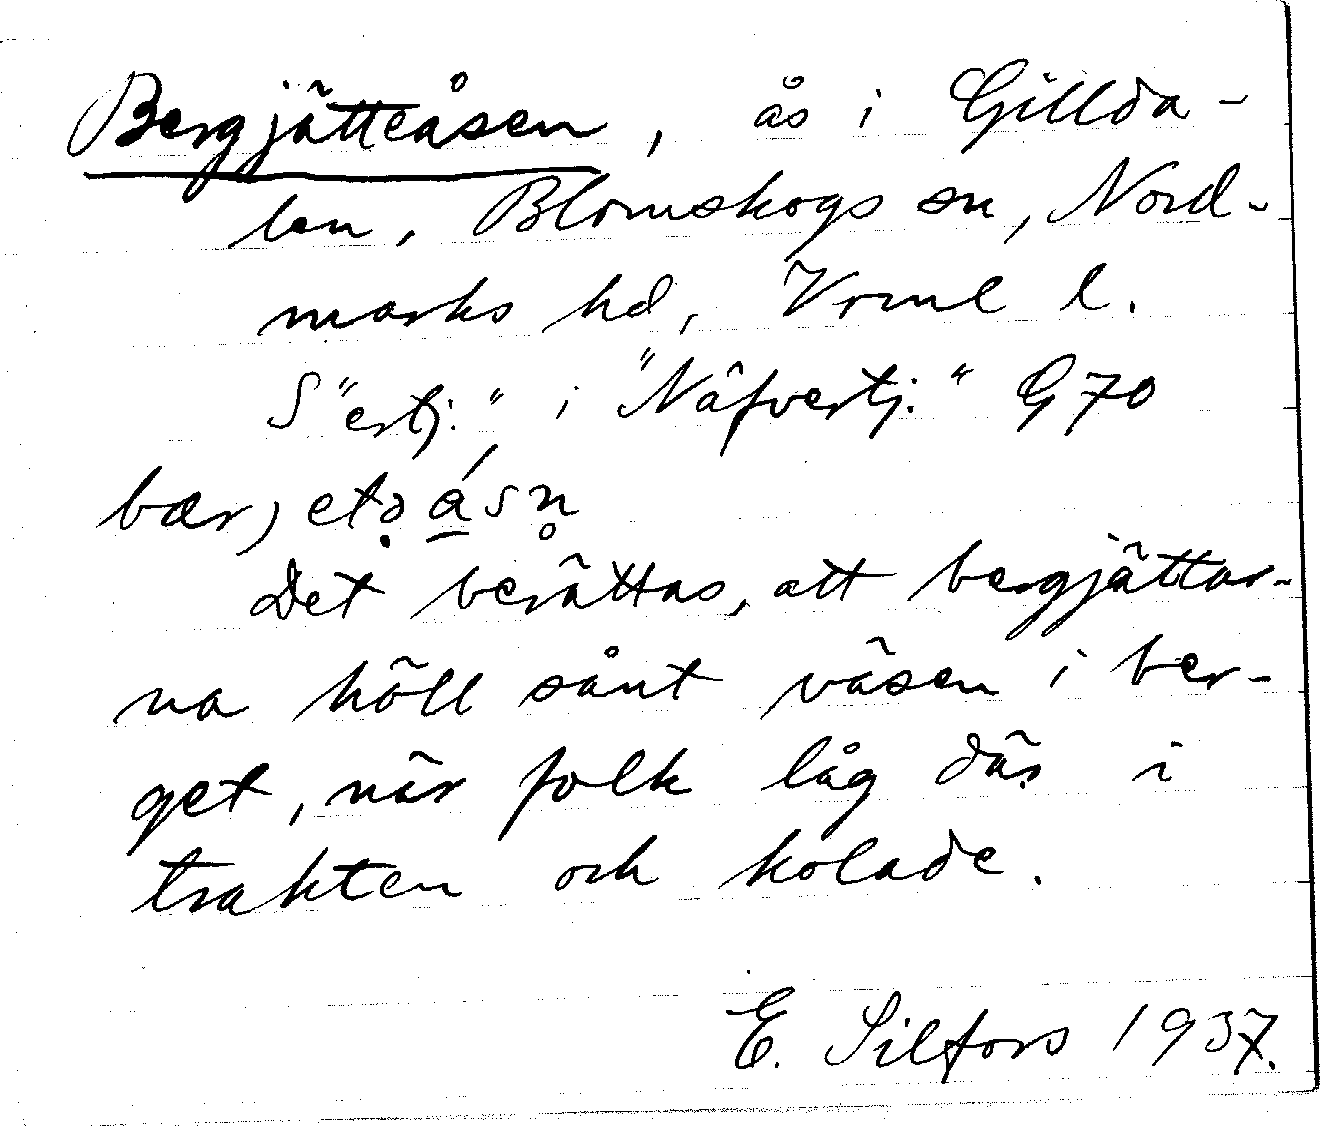 Bergjätteåsen, ås i Gillda-
len, Blomskogs sn, Nord-
marks hd, Vrml l.
S "ertj:" i "Näfvertj." G 70
bær) etə ásn̥
Det berättas, att bergjättar-
na höll sånt väsen i ber-
get, när folk låg där i
trakten och kolade.
E. Silfors 1937.